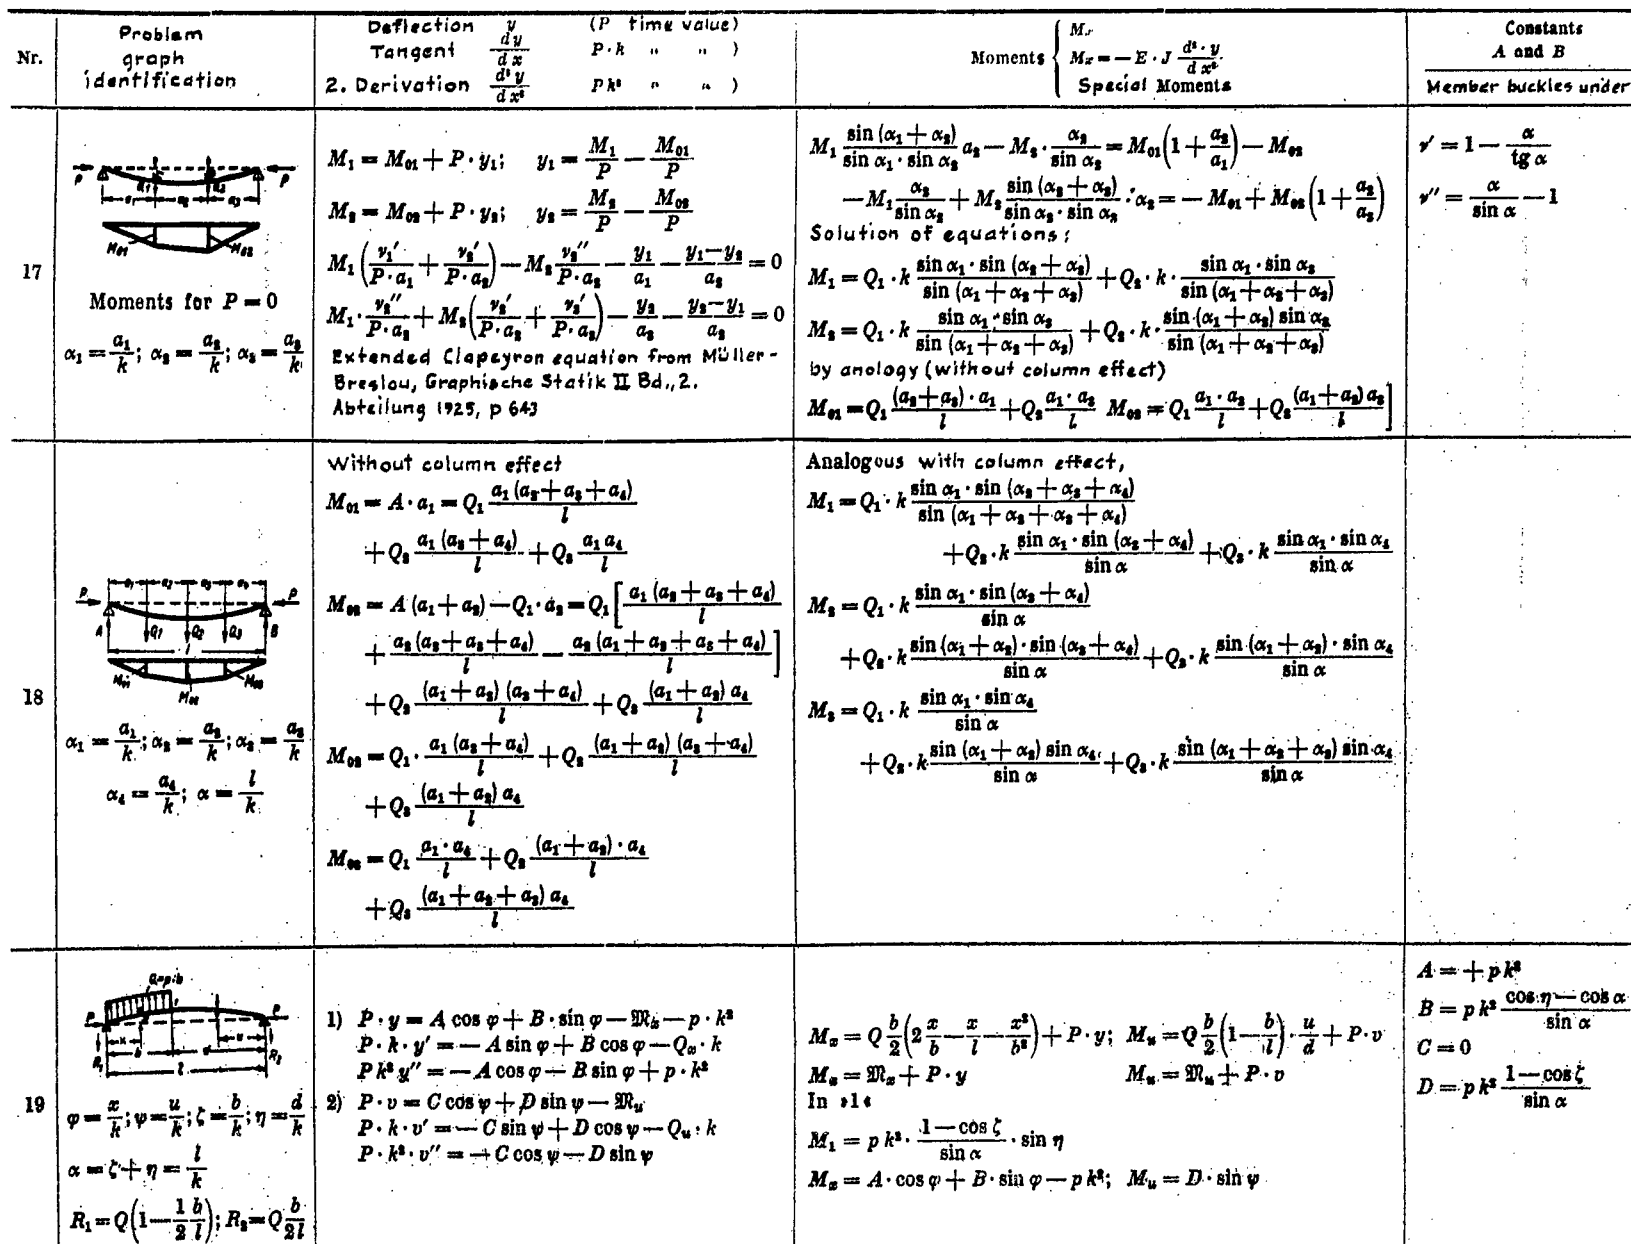 Nr.
Problem
graph
identification
Deflection y (P time value)
Tangent dy/dx P·k " " )
2. Derivation d²y/dx² Pk² " " )
Moments { Mₓ
Mₓ = − E · J d²·y/dx²
Special Moments
Constants
A and B
Member buckles under
17
P P
a₁ a₂ a₃
M₀₁ M₀₂
Moments for P = 0
α₁ = a₁/k; α₂ = a₂/k; α₃ = a₃/k
M₁ = M₀₁ + P · y₁; y₁ = M₁/P − M₀₁/P
M₂ = M₀₂ + P · y₂; y₂ = M₂/P − M₀₂/P
M₁ (ν₁′/(P·a₁) + ν₂′/(P·a₂)) − M₂ ν₂″/(P·a₂) − y₁/a₁ − (y₁−y₂)/a₂ = 0
M₁ · ν₂″/(P·a₂) + M₂ (ν₂′/(P·a₂) + ν₃′/(P·a₃)) − y₂/a₃ − (y₂−y₁)/a₂ = 0
Extended Clapeyron equation from Müller-
Breslau, Graphische Statik II Bd., 2.
Abteilung 1925, p 643
M₁ sin (α₁ + α₂)/(sin α₁ · sin α₂) a₂ − M₂ · α₂/sin α₂ = M₀₁ (1 + a₂/a₁) − M₀₂
− M₁ α₂/sin α₂ + M₂ sin (α₂ + α₃)/(sin α₂ · sin α₃) · α₂ = − M₀₁ + M₀₂ (1 + a₂/a₃)
Solution of equations;
M₁ = Q₁ · k sin α₁ · sin (α₂ + α₃)/sin (α₁ + α₂ + α₃) + Q₂ · k · sin α₁ · sin α₃/sin (α₁ + α₂ + α₃)
M₂ = Q₁ · k sin α₁ · sin α₃/sin (α₁ + α₂ + α₃) + Q₂ · k · sin (α₁ + α₂) sin α₃/sin (α₁ + α₂ + α₃)
by anology (without column effect)
M₀₁ = Q₁ (a₂+a₃) · a₁/l + Q₂ a₁ · a₃/l M₀₂ = Q₁ a₁ · a₃/l + Q₂ (a₁+a₂) a₃/l ]
ν′ = 1 − α/tg α
ν″ = α/sin α − 1
18
a₁ a₂ a₃ a₄
P P
A Q₁ Q₂ Q₃ B
l
M₀₁ M₀₂ M₀₃
α₁ = a₁/k; α₂ = a₂/k; α₃ = a₃/k
α₄ = a₄/k; α = l/k
Without column effect
M₀₁ = A · a₁ = Q₁ a₁ (a₂ + a₃ + a₄)/l
+ Q₂ a₁ (a₃ + a₄)/l + Q₃ a₁ a₄/l
M₀₂ = A (a₁ + a₂) − Q₁ · a₂ = Q₁ [ a₁ (a₂ + a₃ + a₄)/l
+ a₂ (a₂ + a₃ + a₄)/l − a₂ (a₁ + a₂ + a₃ + a₄)/l ]
+ Q₂ (a₁ + a₂) (a₃ + a₄)/l + Q₃ (a₁ + a₂) a₄/l
M₀₂ = Q₁ · a₁ (a₃ + a₄)/l + Q₂ (a₁ + a₂) (a₃ + a₄)/l
+ Q₃ (a₁ + a₂) a₄/l
M₀₃ = Q₁ a₁ · a₄/l + Q₂ (a₁ + a₂) · a₄/l
+ Q₃ (a₁ + a₂ + a₃) a₄/l
Analogous with column effect,
M₁ = Q₁ · k sin α₁ · sin (α₂ + α₃ + α₄)/sin (α₁ + α₂ + α₃ + α₄)
+ Q₂ · k sin α₁ · sin (α₃ + α₄)/sin α + Q₃ · k sin α₁ · sin α₄/sin α
M₂ = Q₁ · k sin α₁ · sin (α₃ + α₄)/sin α
+ Q₂ · k sin (α₁ + α₂) · sin (α₃ + α₄)/sin α + Q₃ · k sin (α₁ + α₂) · sin α₄/sin α
M₃ = Q₁ · k sin α₁ · sin α₄/sin α
+ Q₂ · k sin (α₁ + α₂) sin α₄/sin α + Q₃ · k sin (α₁ + α₂ + α₃) sin α₄/sin α
19
Q=p·b
P P
x u
b d
R₁ l R₂
φ = x/k; ψ = u/k; ζ = b/k; η = d/k
α = ζ + η = l/k
R₁ = Q (1 − 1/2 b/l); R₂ = Q b/2l
1) P · y = A cos φ + B · sin φ − 𝔐ₓ − p · k²
P · k · y′ = − A sin φ + B cos φ − Qₓ · k
P k² y″ = − A cos φ − B sin φ + p · k²
2) P · v = C cos ψ + D sin ψ − 𝔐ᵤ
P · k · v′ = − C sin ψ + D cos ψ − Qᵤ · k
P · k² · v″ = − C cos ψ − D sin ψ
Mₓ = Q b/2 (2 x/b − x/l − x²/b²) + P · y; Mᵤ = Q b/2 (1 − b/l) · u/d + P · v
Mₓ = 𝔐ₓ + P · y Mᵤ = 𝔐ᵤ + P · v
In »1«
M₁ = p k² · (1 − cos ζ)/sin α · sin η
Mₓ = A · cos φ + B · sin φ − p k²; Mᵤ = D · sin ψ
A = + p k²
B = p k² (cos η − cos α)/sin α
C = 0
D = p k² (1 − cos ζ)/sin α